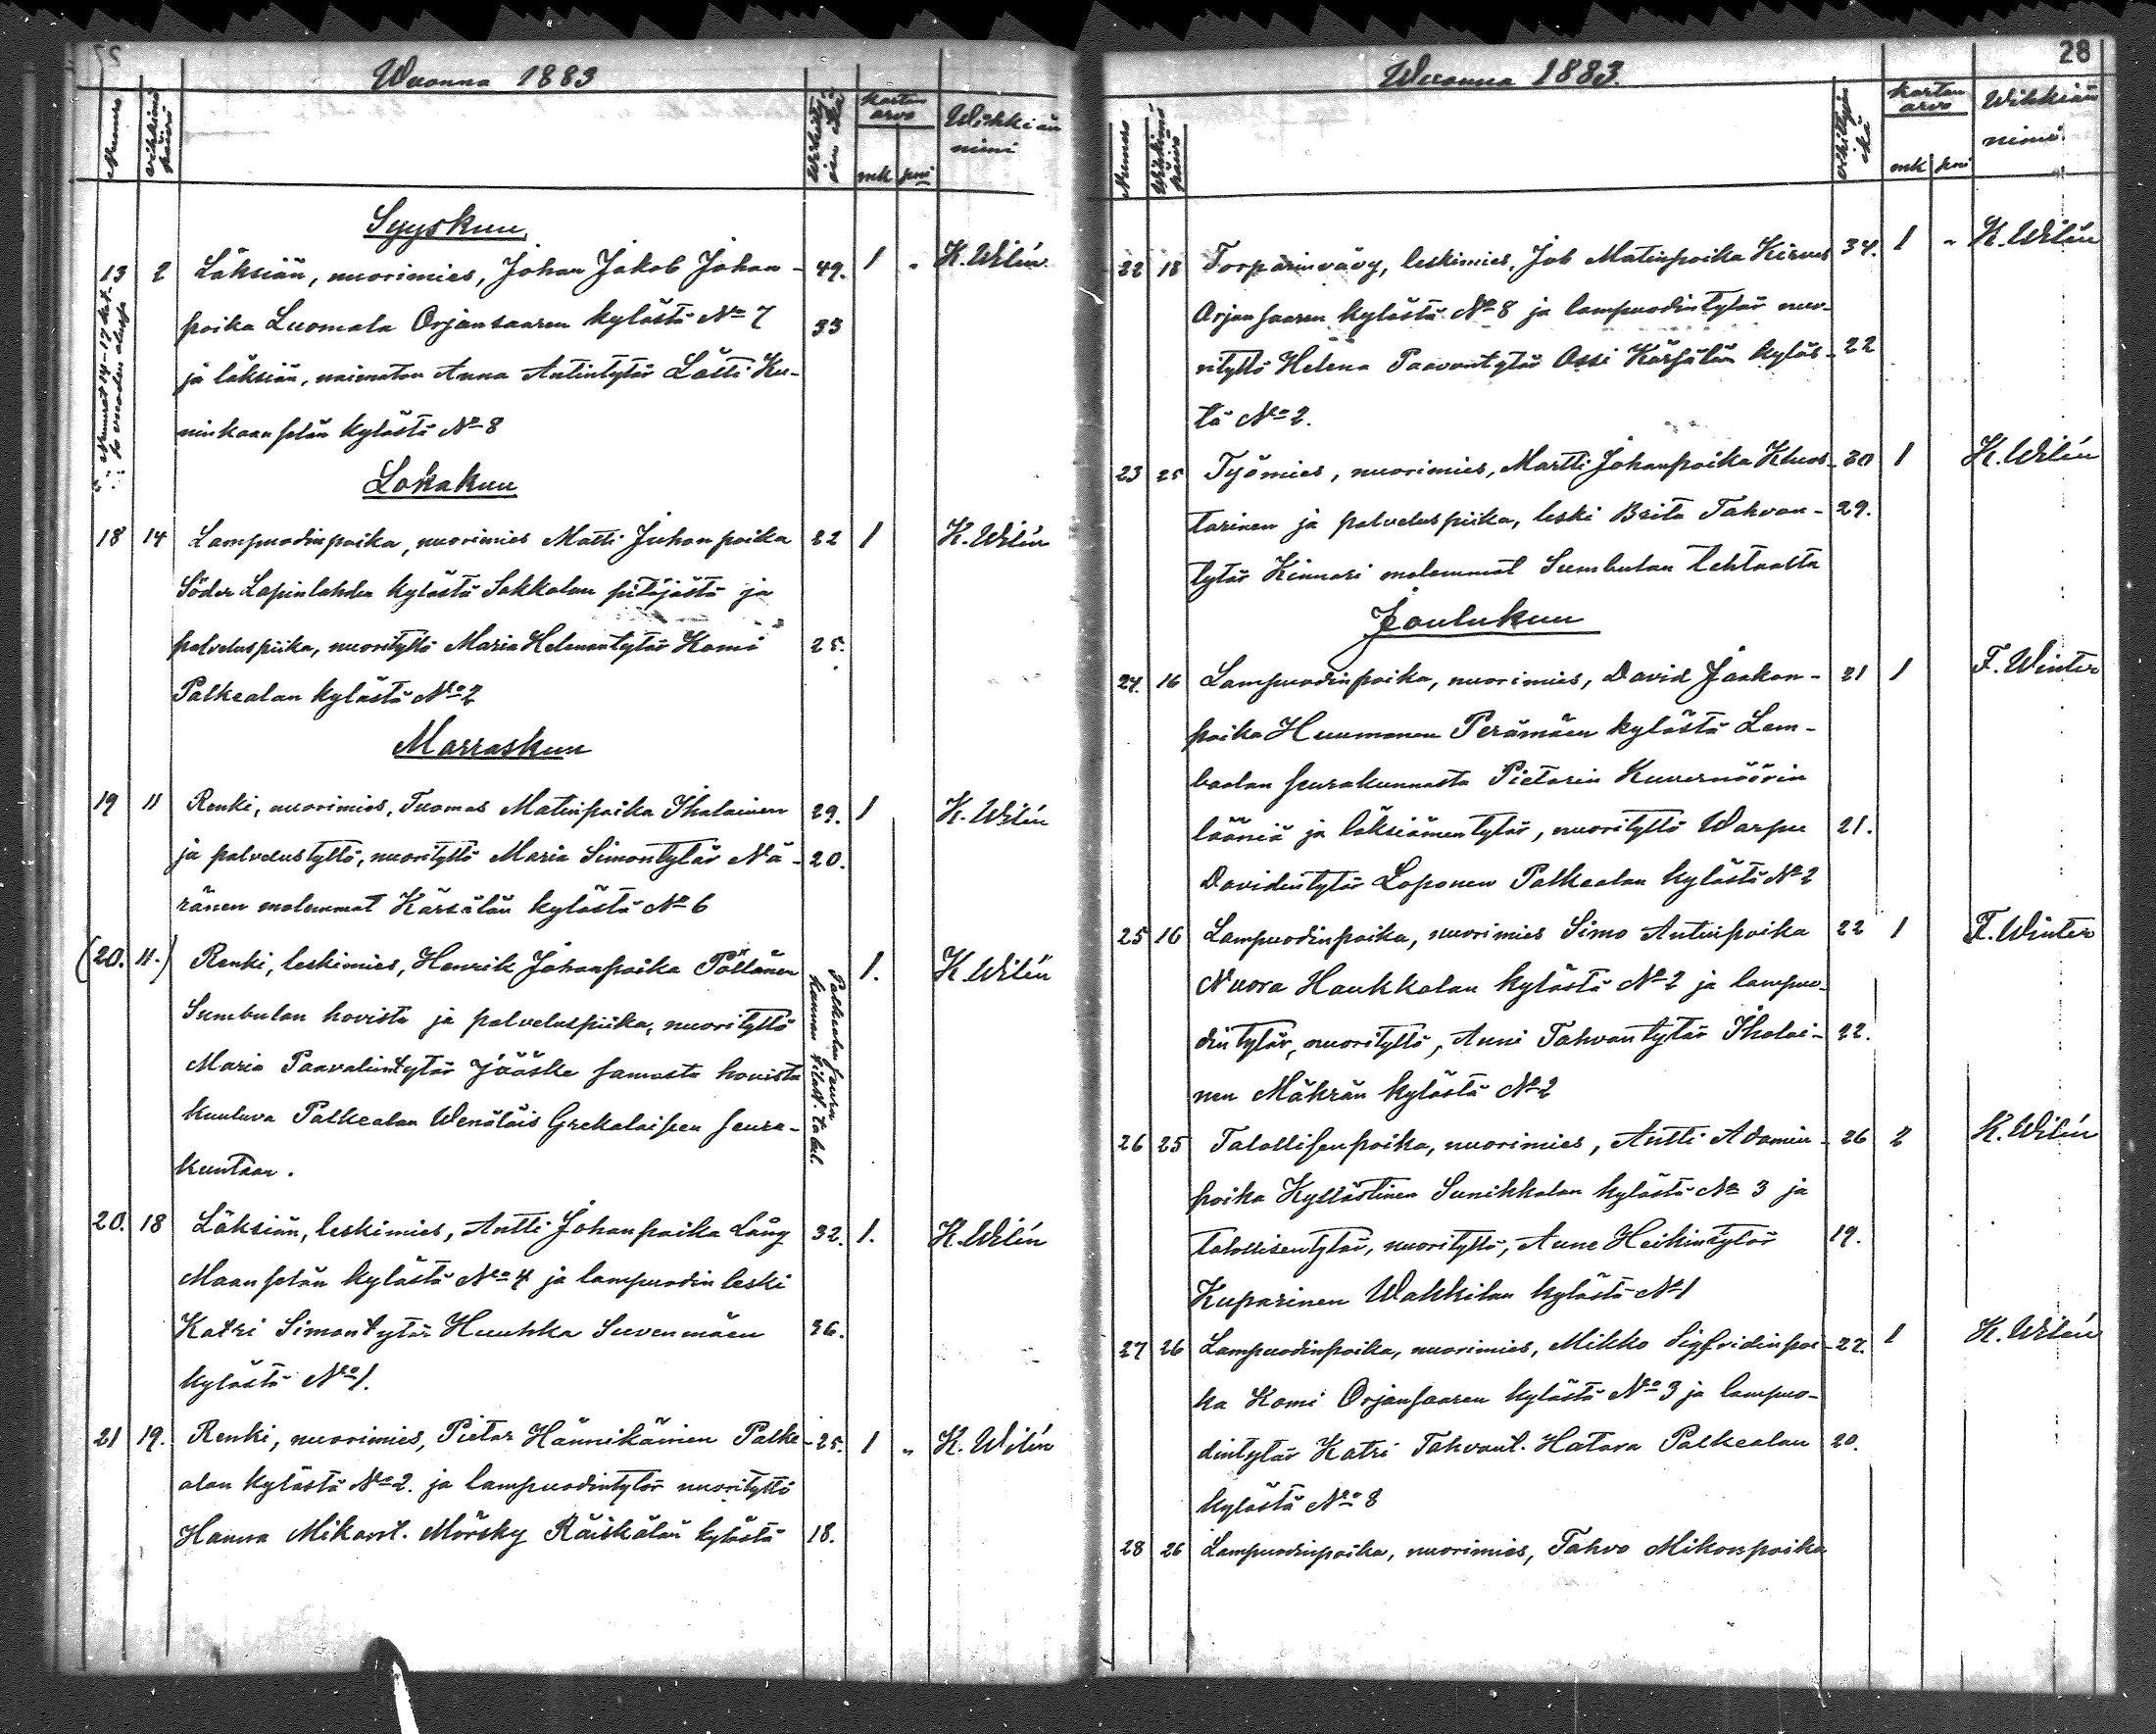 27
Wuonna 1883
Numero
vihkimä päivä
kartan arvo
mk
pni
Wihkiän nimi
Syyskuu
13 2 Läksiän, nuorimies, Johan Jakob Johan- 49. 1 " K. Wilén
poika Luomala Orjansaaren kylästä No 7 33
ja läksiän, naimaton Anna Antintytär Lätti Ku-
ninkaanselän kylästä No 8
Numerot 14-17 kat.
Lokakuu
18 14 Lampuodinpoika, nuorimies Matti Juhonpoika 22 1 K. Wilén
Söder Lapinlahden kylästä Sakkolan pitäjästä ja
palveluspiika, nuorityttö Maria Helenantytär Komi 25.
Palkealan kylästä No 2
Marraskuu
19 11 Renki, nuorimies, Tuomas Matinpoika Ihalainen 29. 1 K. Wilén
ja palvelustyttö, nuorityttö Maria Simontytär Nä- 20.
ränen molemmat Kärsälän kylästä No 6
(20. 11.) Renki, leskimies, Henrik Johanpoika Pöllänen 1. K. Wilén
Sumbulan hovista ja palveluspiika, nuorityttö
Maria Paavalintytär Jääske samasta hovista
kuuluva Palkealan Wenäläis Grekalaiseen seura-
kuntaan.
Palkealan seura
kunnan tilast. tabel.
20. 18 Läksiän, leskimies, Antti Johanpoika Lång 32. 1. K. Wilén
Maanselän kylästä No 4 ja lampuodin leski
Katri Simontytär Huuhka Suvenmäen 36.
kylästä No 1.
21 19. Renki, nuorimies, Pietar Hännikäinen Palke- 25. 1 " K. Wilén
alan kylästä No 2. ja lampuodintytär nuorityttö
Hanna Mikont. Mörsky Räiskälän kylästä 18.
28
Wuonna 1883.
Numero
Wihkimä päivä
vihittyin ikä
kartan arvo
mk
pni
Wihkiän nimi
22 18 Torparinvävy, leskimies, Job Matinpoika Kirves 34. 1 " K. Wilén
Orjansaaren kylästä No 8 ja lampuodintytär nuo-
rityttö Helena Paavontytär Ossi Kärsälän kyläs- 22
tä No 2.
23 25 Työmies, nuorimies, Martti Johanpoika Kluos- 30 1 K. Wilén
tarinen ja palveluspiika, leski Brita Tahvon- 29.
tytär Kinnari molemmat Sumbulan tehtaasta
Joulukuu
24. 16 Lampuodinpoika, nuorimies, David Jaakon- 21 1 F. Winter
poika Huumonen Perämäen kylästä Lem-
baalan seurakunnasta Pietarin Kuvernöörin
lääniä ja läksiämentytär, nuorityttö Warpu 21.
Davidintytär Loponen Palkealan kylästä No 2
25 16 Lampuodinpoika, nuorimies Simo Antinpoika 22 1 F. Winter
Nuora Haukkalan kylästä No 2 ja lampuo-
dintytär, nuorityttö, Anni Tahvontytär Iholai- 22.
nen Mäkrän kylästä No 2
26 25 Talollisenpoika, nuorimies, Antti Adamin- 26 2 K. Wilén
poika Kyllästinen Sunikkalan kylästä No 3 ja
talollisentytär, nuorityttö, Anne Heikintytär 19.
Kuparinen Wakkilan kylästä No 1
27 26 Lampuodinpoika, nuorimies, Mikko Sigfridinpoi- 22. 1 K. Wilén
ka Komi Orjansaaren kylästä No 3 ja lampuo-
dintytär Katri Tahvont. Hatara Palkealan 20.
kylästä No 8
28 26 Lampuodinpoika, nuorimies, Tahvo Mikonpoika